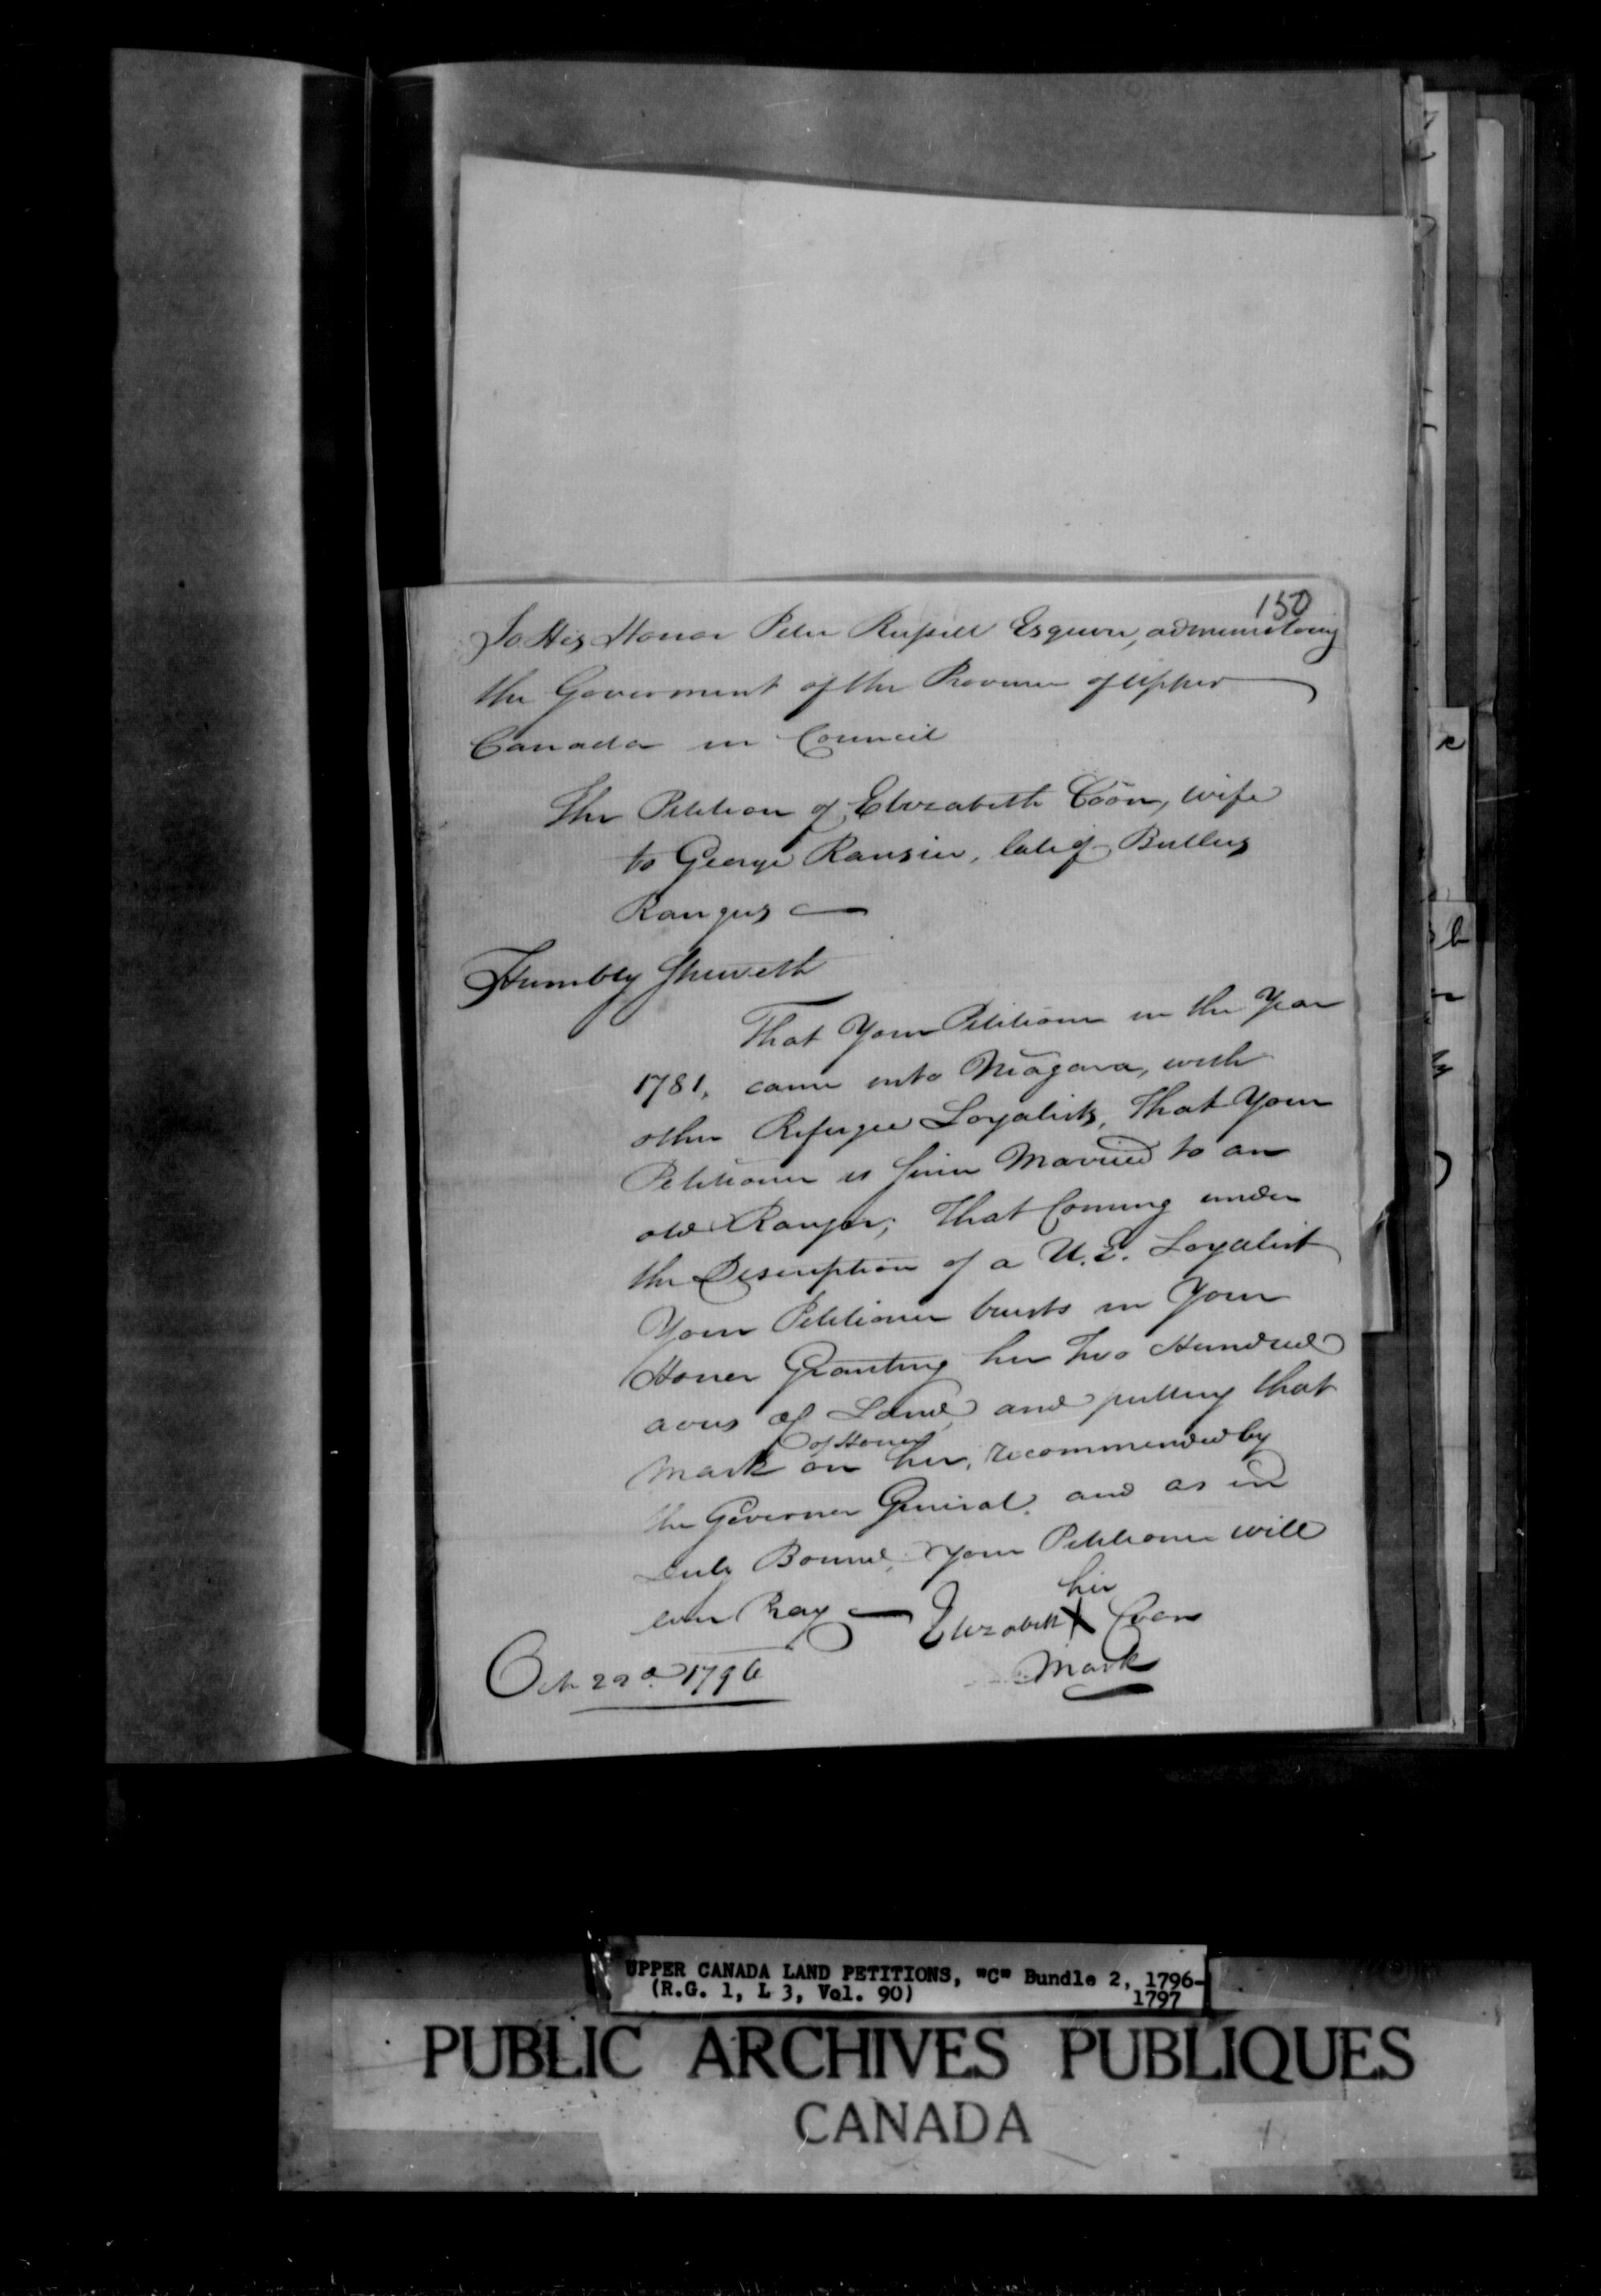 150
To His Honor Peter Russell Esquire, administering
the Goverment of the Province of Upper
Canada in Council
The Petition of Elizabeth Coon, wife
to George Ransier, late of Butlers
Rangers
Humbly Sheweth
That Your Petitioner in the Year
1781, came into Niagara, with
other Refugee Loyalists, That Your
Petitioner is since Married to an
old Ranger; That Coming under
the Description of a U.E. Loyalist
Your Petitioner trusts in Your
Honor Granting her Two Hundred
acres of Land, and putting that
of Honor
Mark on her, recommended by
the Governor General. and as in
Duty Bound, Your Petitioner will
ever Pray
her
Elizabeth X Coon
Mark
Oct 22d 1796
UPPER CANADA LAND PETITIONS, "C" Bundle 2, 1796-
(R.G. 1, L 3, Vol. 90) 1797
PUBLIC ARCHIVES PUBLIQUES
CANADA